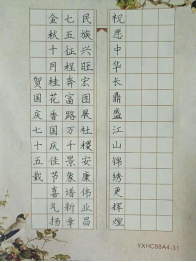 贺国庆七十五载
金秋十月桂花香国庆佳节喜气扬
七五征程奔富路万千景象谱新章
民族兴旺宏图展社稷安康伟业昌
祝愿中华长鼎盛江山锦绣更辉煌
YXHC66A4-31